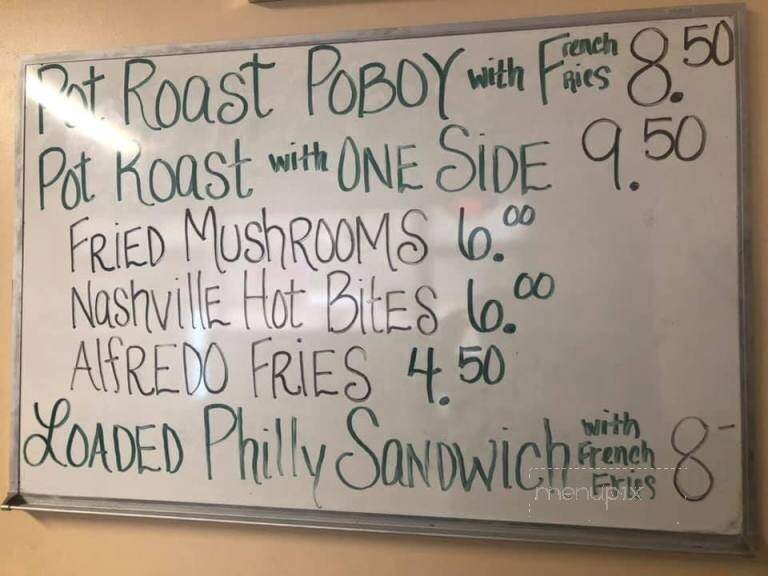 Pot Roast POBOY with French Fries 8.50
Pot Roast with ONE SIDE 9.50
FRIED MUShROOMS 6.00
NashvillE Hot BitES 6.00
AlfREDO FRiES 4.50
LOADED Philly SANDWich with French Fries 8-
menupix